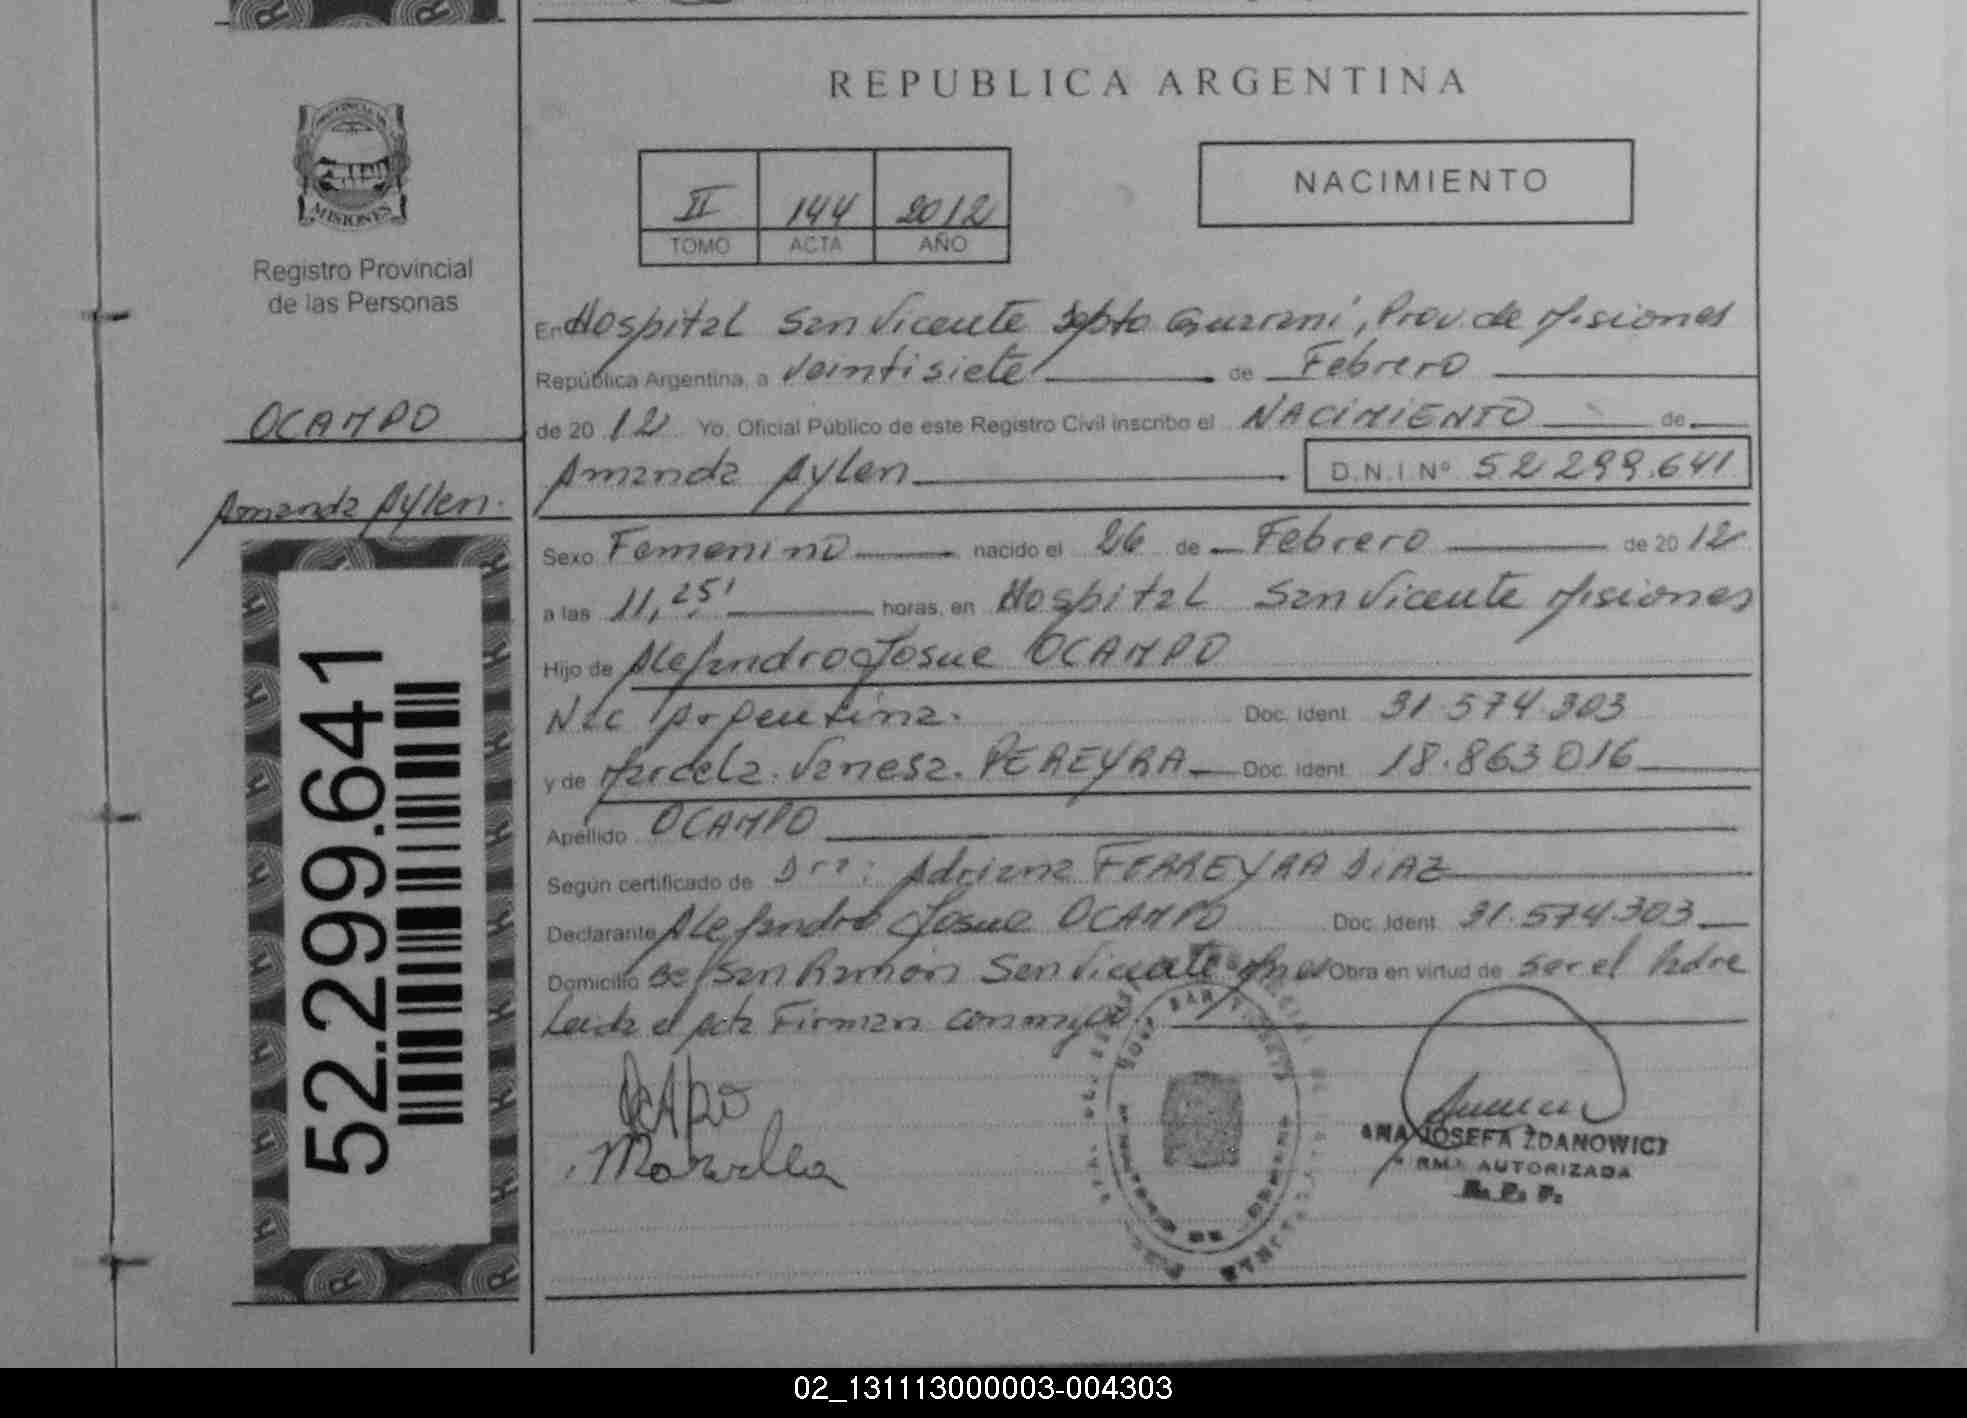 REPUBLICA ARGENTINA
PROVINCIA DE
MISIONES
Registro Provincial
de las Personas
II 144 2012
TOMO ACTA AÑO
NACIMIENTO
En Hospital San Vicente Dpto Guarani, Prov. de Misiones
República Argentina, a veintisiete de Febrero
OCAMPO
de 20 12 Yo, Oficial Público de este Registro Civil inscribo el NACIMIENTO de
Amanda Aylen D.N.I Nº 52.299.641
Amanda Aylen.
Sexo Femenino nacido el 26 de Febrero de 20 12
a las 11,25' horas, en Hospital San Vicente Misiones
Hijo de Alejandro Josue OCAMPO
Nac Argentina. Doc. Ident. 31.574.303
y de Marcela Vanesa PEREYRA Doc. Ident. 18.863 016
Apellido OCAMPO
Según certificado de Dra: Adriana FERREYRA DiAZ
Declarante Alejandro Josue OCAMPO Doc. Ident. 31.574.303
Domicilio San Ramón San Vicente Obra en virtud de ser el Padre
Leida el acta Firman conmigo
52.299.641
ANA JOSEFA ZDANOWICZ
AUTORIZADA
R. P. P.
02_131113000003-004303